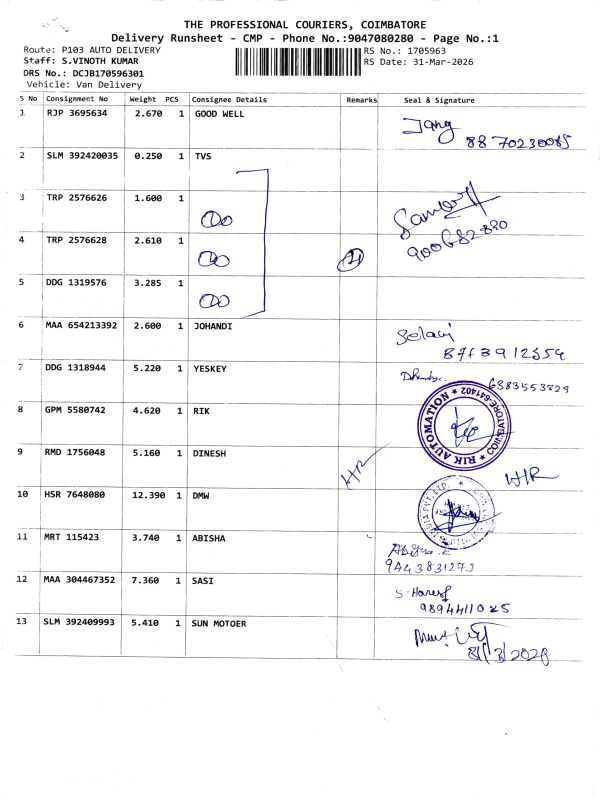 THE PROFESSIONAL COURIERS, COIMBATORE
Delivery Runsheet - CMP - Phone No.:9047080280 - Page No.:1
Route: P103 AUTO DELIVERY
Staff: S.VINOTH KUMAR
DRS No.: DCJB170596301
Vehicle: Van Delivery
RS No.: 1705963
RS Date: 31-Mar-2026
S No Consignment No Weight PCS Consignee Details Remarks Seal & Signature
1 RJP 3695634 2.670 1 GOOD WELL
8870230085
2 SLM 392420035 0.250 1 TVS
3 TRP 2576626 1.600 1
4 TRP 2576628 2.610 1
5 DDG 1319576 3.285 1
6 MAA 654213392 2.600 1 JOHANDI
Selavi
7 DDG 1318944 5.220 1 YESKEY
6383553829
8 GPM 5580742 4.620 1 RIK
RIK AUTOMATION * COIMBATORE-641402 *
9 RMD 1756048 5.160 1 DINESH
H/R
H/R
10 HSR 7648080 12.390 1 DMW
INDIA PVT. LTD.
11 MRT 115423 3.740 1 ABISHA
9443831273
12 MAA 304467352 7.360 1 SASI
9894411025
13 SLM 392409993 5.410 1 SUN MOTOER